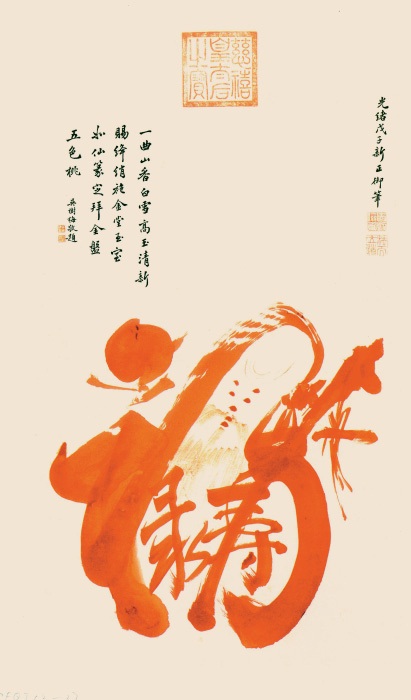 慈禧
皇太后
之寶
光緒戊子新正御筆
一曲山香白雪高玉清新
賜絳綃金堂玉室
如仙篆定拜金盤
五色桃
吳樹梅敬題
祿寿